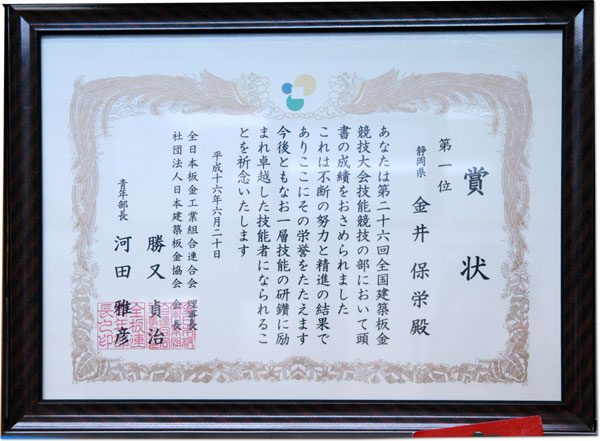 賞状
第一位
静岡県　金井保栄殿
あなたは第二十六回全国建築板金
競技大会技能競技の部において頭
書の成績をおさめられました
これは不断の努力と精進の結果で
ありここにその栄誉をたたえます
今後ともなお一層技能の研鑽に励
まれ卓越した技能者になられるこ
とを祈念いたします
平成十六年六月二十日
全日本板金工業組合連合会　理事長
社団法人日本建築板金協会　会長
勝又貞治
青年部長　河田雅彦